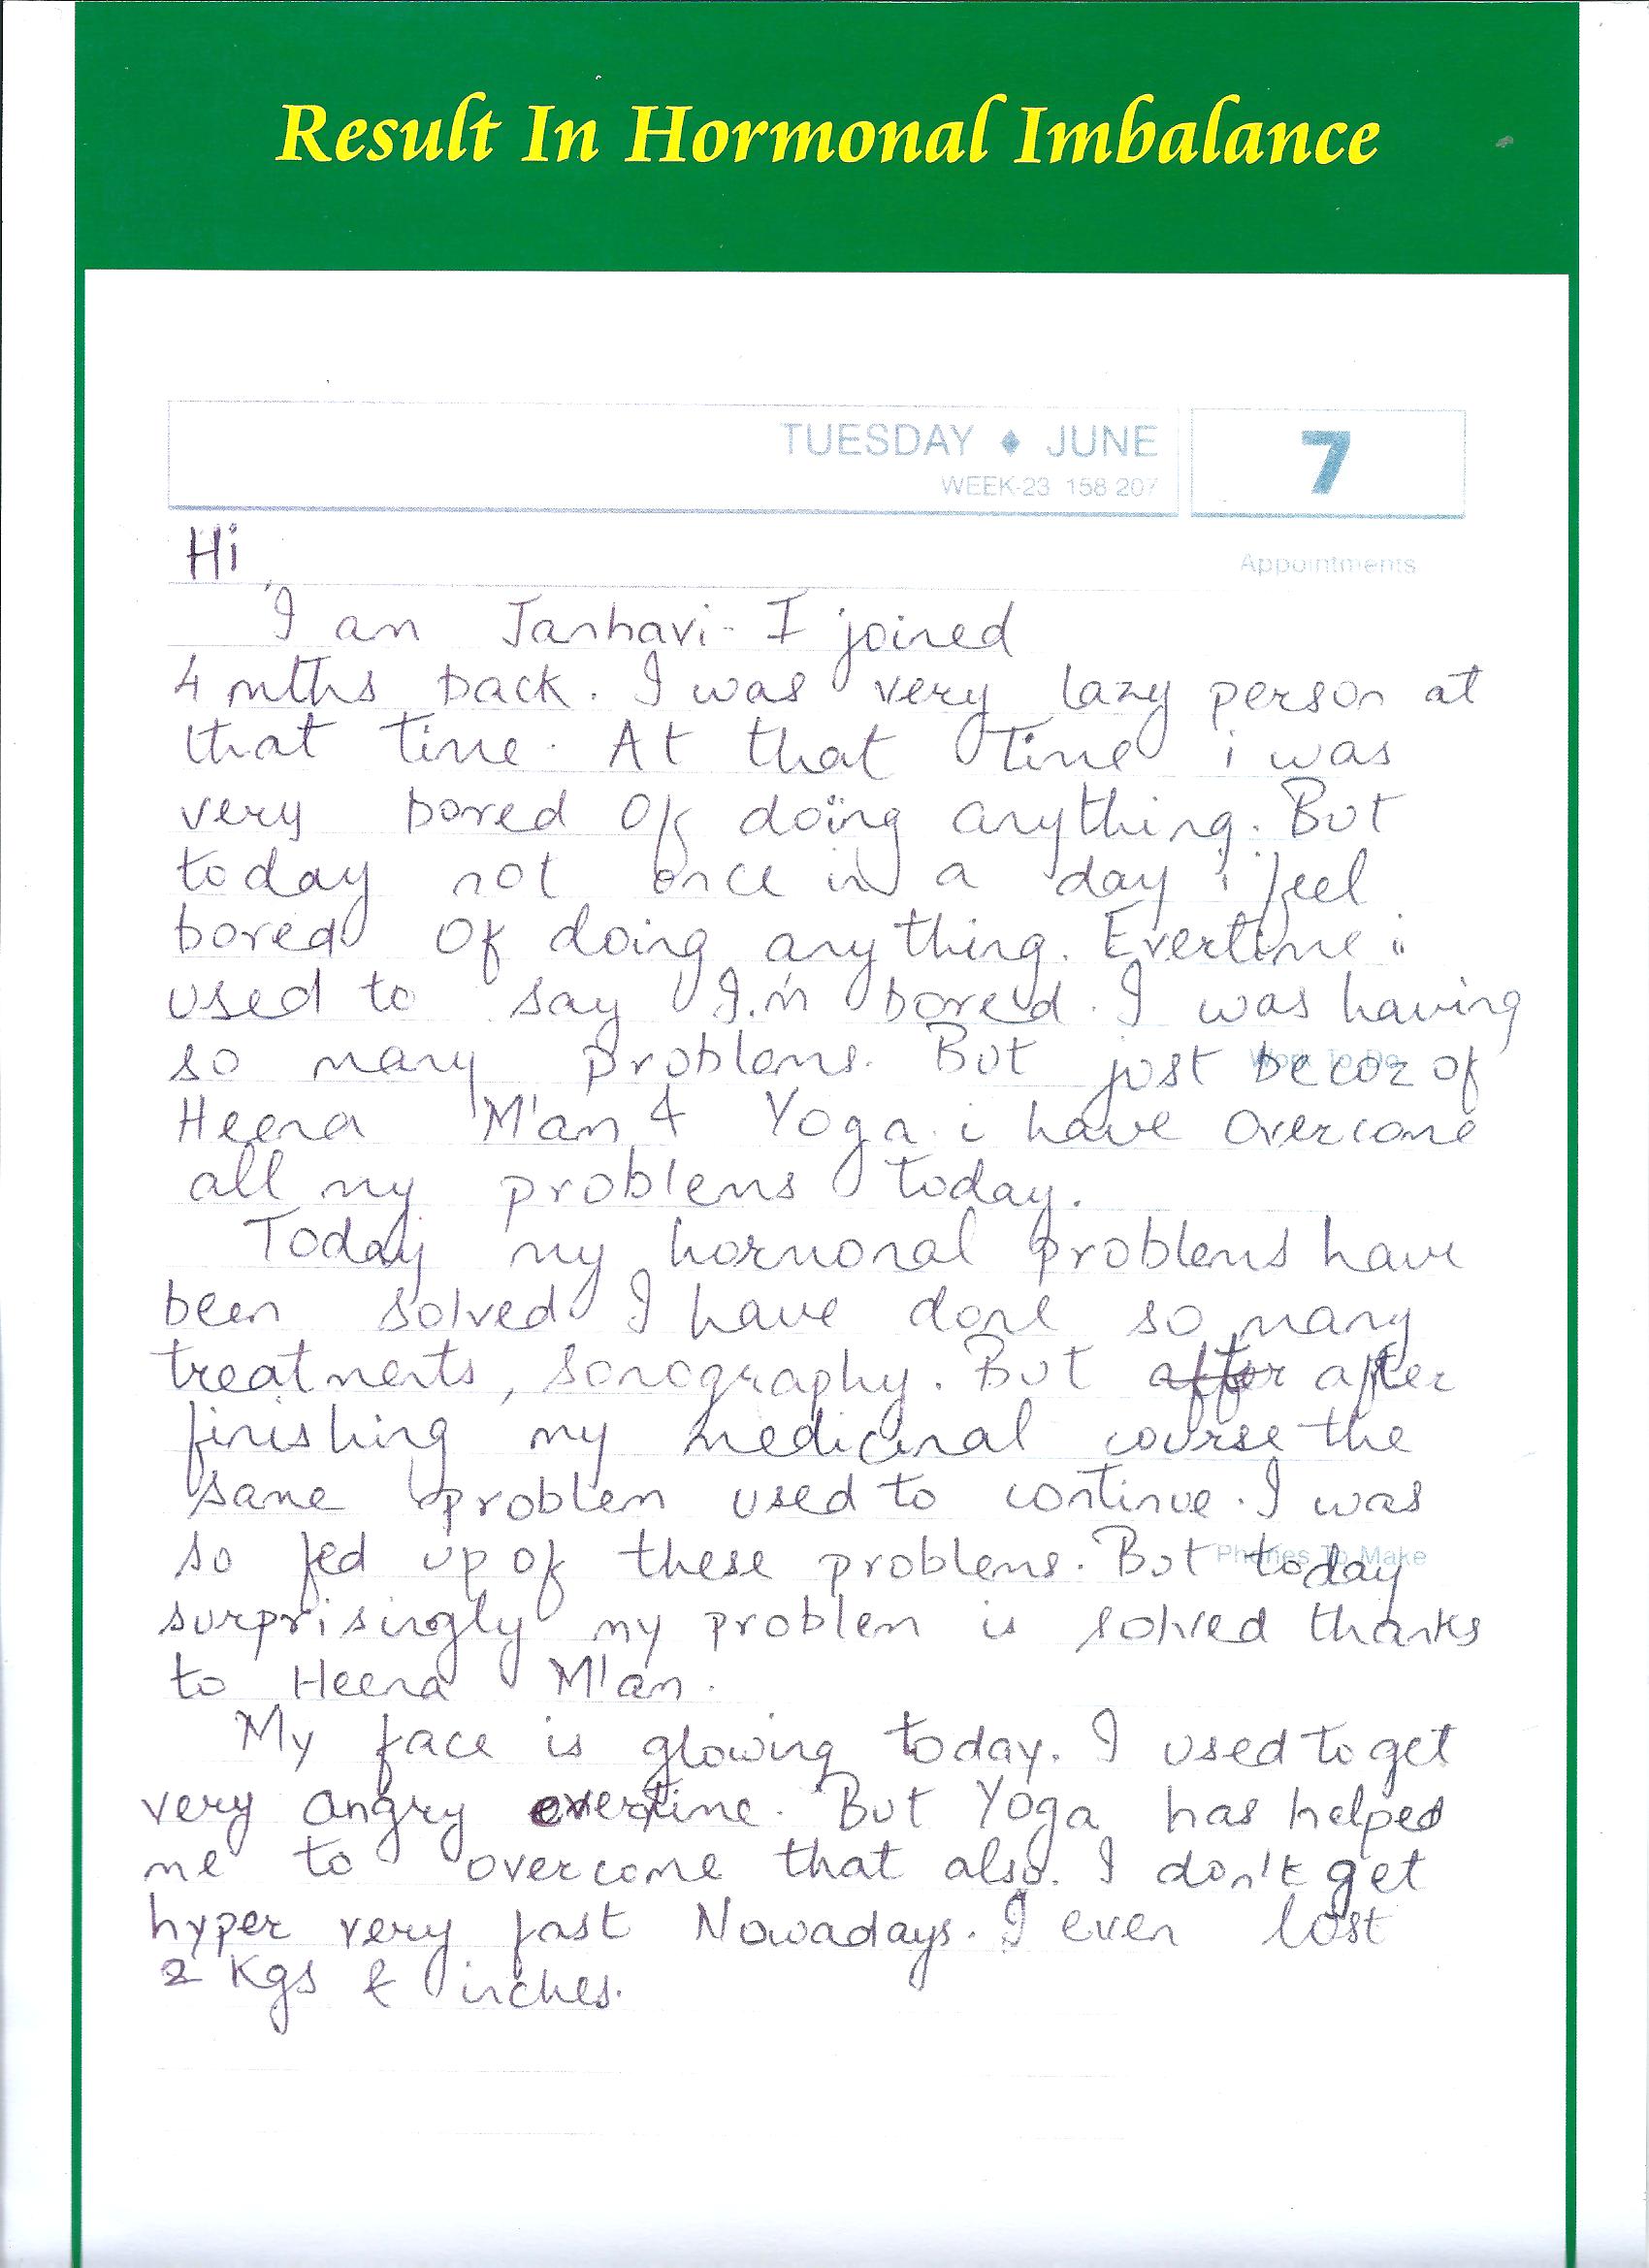 Result In Hormonal Imbalance
TUESDAY ♦ JUNE
7
WEEK-23 158 207
Hi
Appointments
I am Janhavi- I joined
4 mths back. I was very lazy person at
that time. At that time i was
very bored Of doing anything. But
today not once in a day i feel
bored Of doing anything. Evertime i
used to say I.m bored. I was having
so many problems. But just becoz of
Work To Do
Heena M'am & Yoga i have Overcome
all my problems today.
Today my hormonal problems have
been solved I have done so many
treatments, sonography. But after after
finishing my medicinal course the
same problem used to continue. I was
so fed up of these problems. But today
Phones To Make
surprisingly my problem is solved thanks
to Heena M'am.
My face is glowing today. I used to get
very angry evertime. But Yoga has helped
me to overcome that also. I don't get
hyper very fast Nowadays. I even lost
2 Kgs & inches.